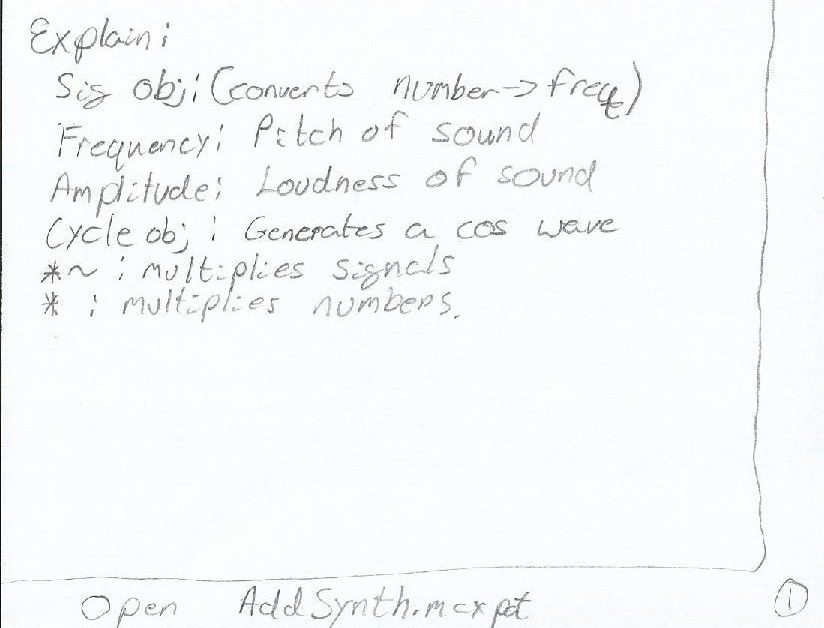 Explain:
Sig obj: (converts number -> freq)
Frequency: Pitch of sound
Amplitude: Loudness of sound
Cycle obj : Generates a cos wave
*~ : multiplies signals
* : multiplies numbers.
Open AddSynth.maxpat
1